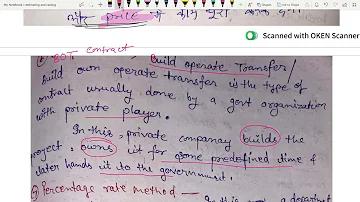 My Notebook | estimating and costing
price
Scanned with OKEN Scanner
BOT contract
Build operate Transfer /
Build own operate transfer is the type of
contract usually done by a govt organization
with private player.
In this, private companay builds the
project, owns it for some predefined time &
later hands it to the government.
Percentage rate method —
In this